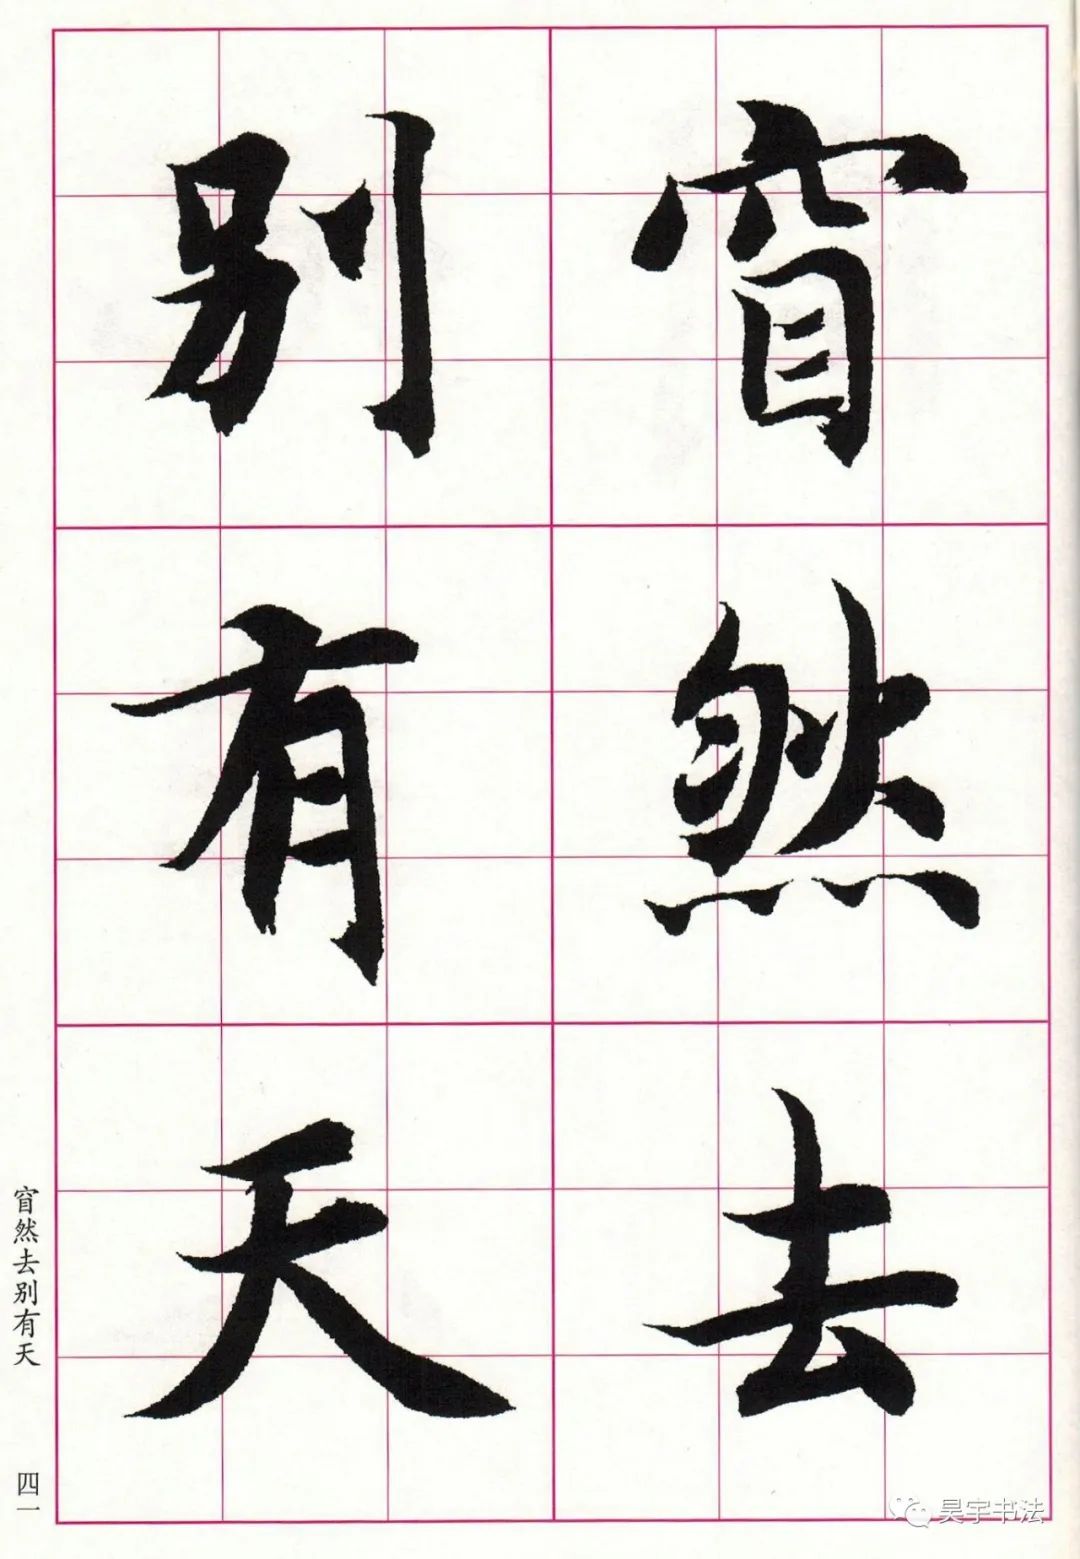 窅然去
别有天
窅然去别有天
四一
昊宇书法